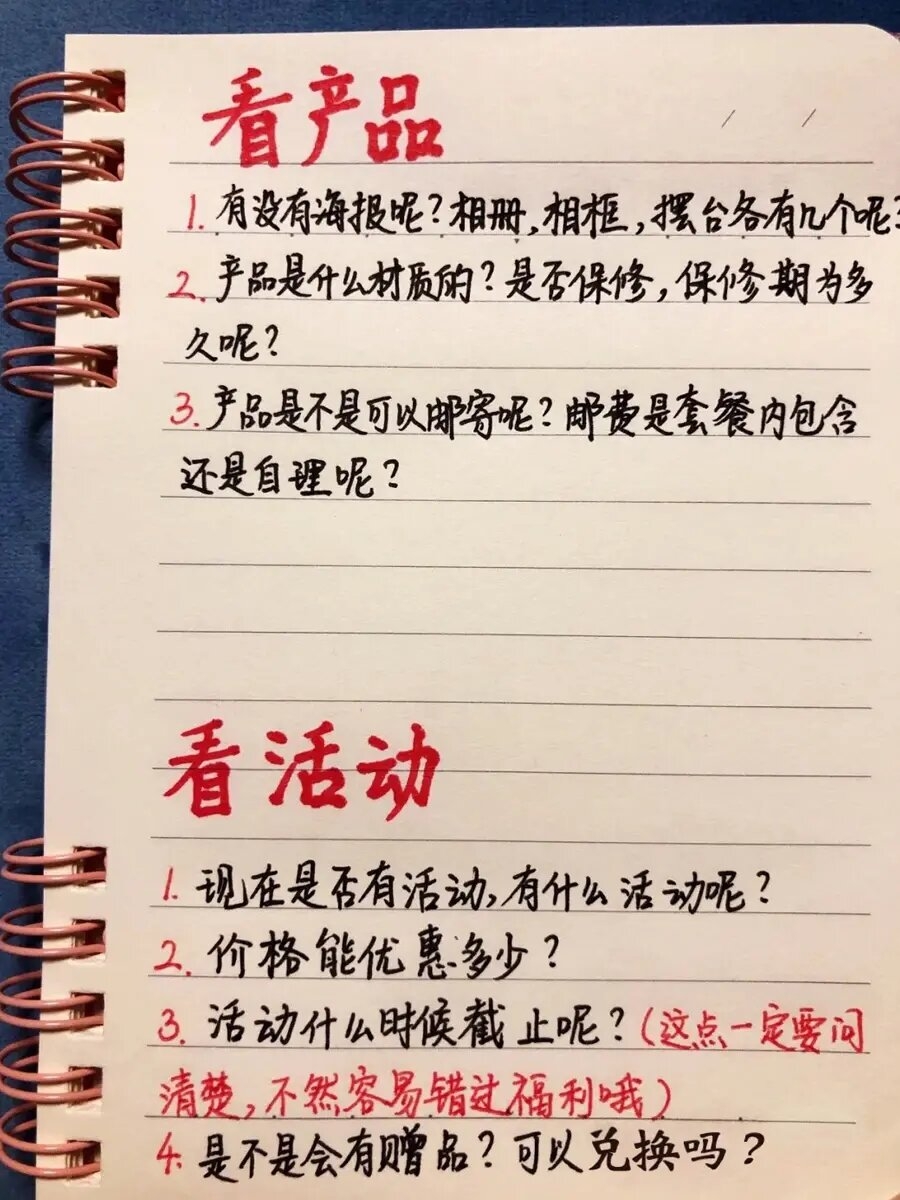 看产品
1. 有没有海报呢？相册，相框，摆台各有几个呢？
2. 产品是什么材质的？是否保修，保修期为多
久呢？
3. 产品是不是可以邮寄呢？邮费是套餐内包含
还是自理呢？
看活动
1. 现在是否有活动，有什么活动呢？
2. 价格能优惠多少？
3. 活动什么时候截止呢？（这点一定要问
清楚，不然容易错过福利哦）
4. 是不是会有赠品？可以兑换吗？